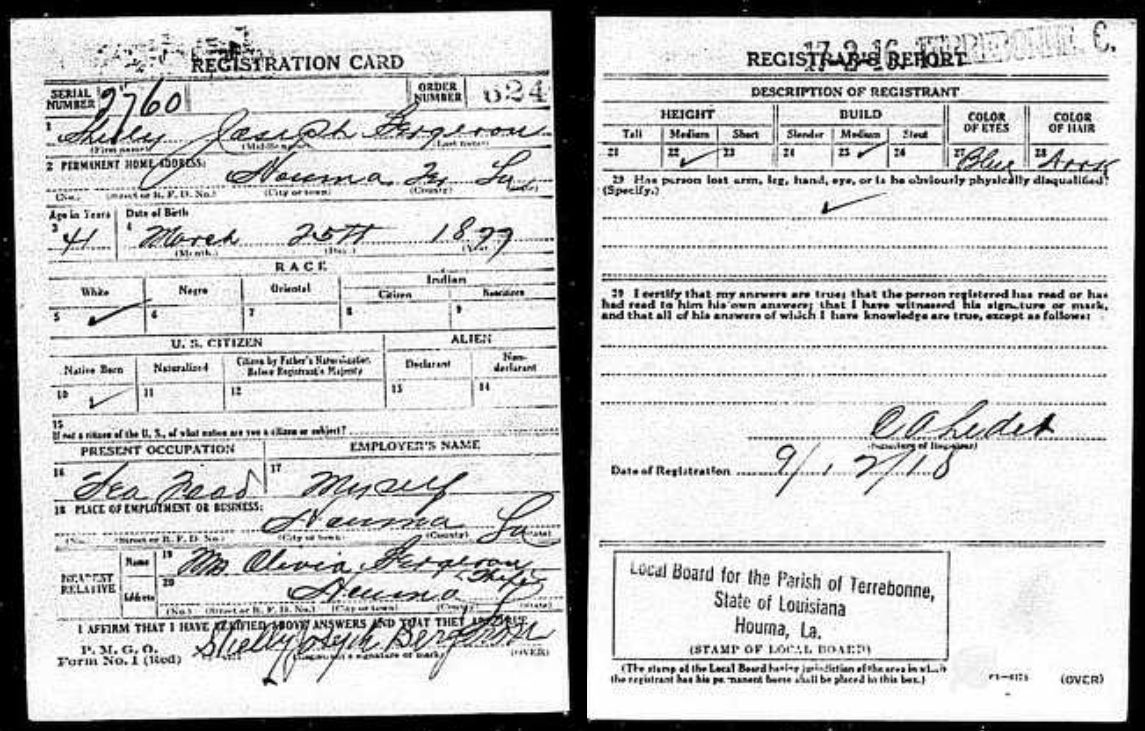 REGISTRATION CARD
SERIAL NUMBER 2760
ORDER NUMBER 624
1 Shelly Joseph Bergeron
(First name) (Middle name) (Last name)
2 PERMANENT HOME ADDRESS:
Houma, Ter La
(No.) (Street or R. F. D. No.) (City or town) (County) (State)
Age in Years Date of Birth
3 41 4 March 25th 1877
(Month.) (Day.) (Year.)
RACE
White Negro Oriental Indian
Citizen Noncitizen
5 ✓ 6 7 8 9
U. S. CITIZEN ALIEN
Native Born Naturalized Citizen by Father's Naturalization Before Registrant's Majority Declarant Non-declarant
10 ✓ 11 12 13 14
15
If not a citizen of the U. S., of what nation are you a citizen or subject?
PRESENT OCCUPATION EMPLOYER'S NAME
16 Sea Food 17 Myself
18 PLACE OF EMPLOYMENT OR BUSINESS:
Houma La
(No.) (Street or R. F. D. No.) (City or town) (County) (State)
NEAREST RELATIVE
Name 19 Mrs. Olivia Bergeron
(Wife)
Address 20 Houma
(No.) (Street or R. F. D. No.) (City or town) (County) (State)
I AFFIRM THAT I HAVE VERIFIED ABOVE ANSWERS AND THAT THEY ARE TRUE
P. M. G. O.
Form No. 1 (Red)
Shelly Joseph Bergeron
(Registrant's signature or mark)
(OVER)
17-3-16. TERREBONNE, C.
REGISTRAR'S REPORT
DESCRIPTION OF REGISTRANT
HEIGHT BUILD COLOR OF EYES COLOR OF HAIR
Tall Medium Short Slender Medium Stout
21 22 ✓ 23 24 25 ✓ 26 27 Blue 28 Dark
29 Has person lost arm, leg, hand, eye, or is he obviously physically disqualified?
(Specify.)
✓
30 I certify that my answers are true; that the person registered has read or has
had read to him his own answers; that I have witnessed his signature or mark,
and that all of his answers of which I have knowledge are true, except as follows:
C A Ledet
(Signature of Registrar)
Date of Registration 9/12/18
Local Board for the Parish of Terrebonne,
State of Louisiana
Houma, La.
(STAMP OF LOCAL BOARD)
(The stamp of the Local Board having jurisdiction of the area in which
the registrant has his permanent home shall be placed in this box.)
(OVER)